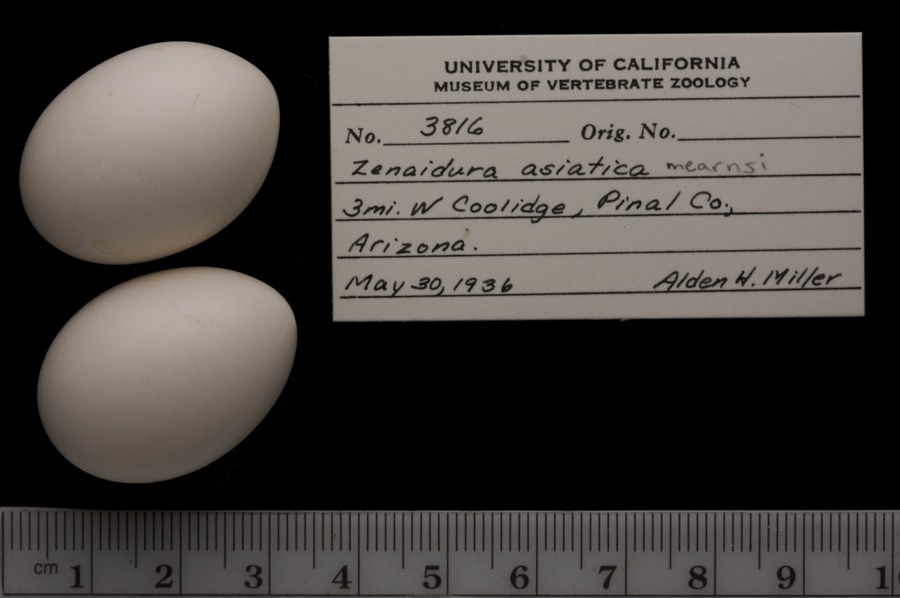 UNIVERSITY OF CALIFORNIA
MUSEUM OF VERTEBRATE ZOOLOGY
No. 3816 Orig. No.
Zenaidura asiatica mearnsi
3mi. W Coolidge, Pinal Co.,
Arizona.
May 30, 1936 Alden H. Miller
cm 1 2 3 4 5 6 7 8 9 1